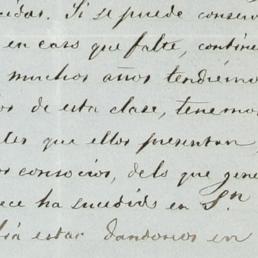 cidas. Si se puede conserv
en caso que falte, contine
muchos años tendiémo
os de esta clase, tenemos
les que ellos presentan
os consocios, de lo que gene
ece ha sucedido en Sn
rá estar dandonos en